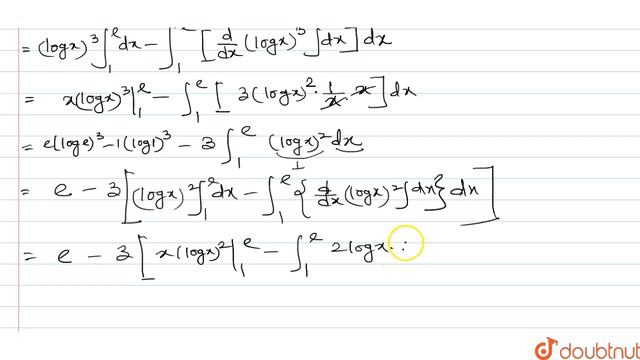 = (logx)³ ∫₁ᵉ dx − ∫₁ᵉ [ d/dx (logx)³ ∫dx ] dx
= x(logx)³ |₁ᵉ − ∫₁ᵉ [ 3(logx)² · 1/x · x ] dx
= e(loge)³ − 1(log1)³ − 3 ∫₁ᵉ (logx)² dx
I
= e − 3 [ (logx)² ∫₁ᵉ dx − ∫₁ᵉ { d/dx (logx)² ∫dx } dx ]
= e − 3 [ x(logx)² |₁ᵉ − ∫₁ᵉ 2logx ·
doubtnut